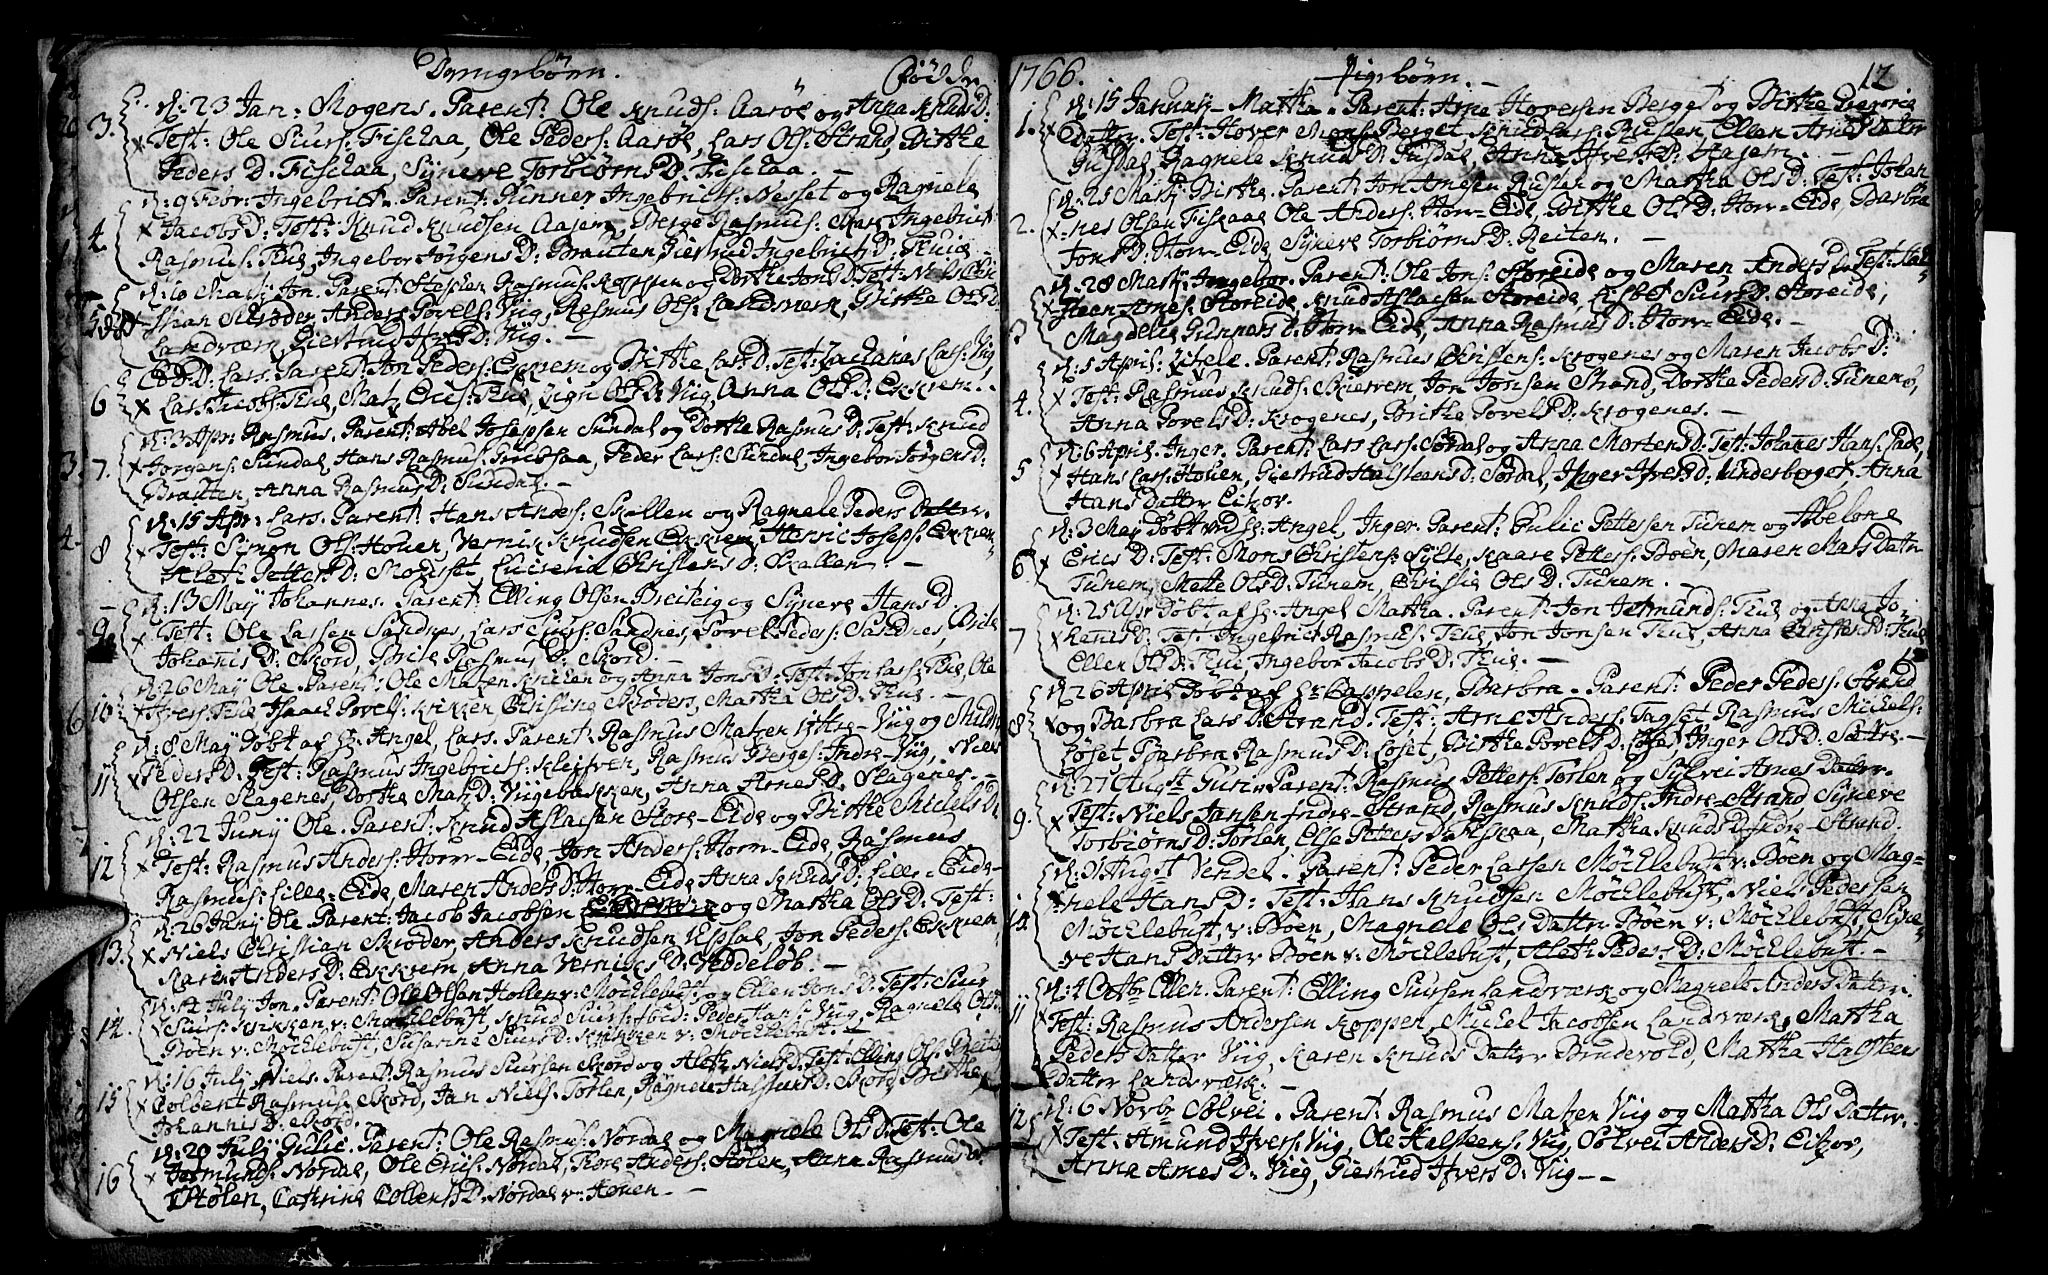 Drengebørn. Födde
3. d: 23 Jan: Mogens. Parent: Ole Knuds: Aaröe og Anna Knuds D:
Test: Ole Siurs: Fischaa, Ole Peders: Aaröe, Lars Ols: Strand, Birthe
Peders D: Fischaa, Syneve Torbiørns D: Fischaa. —
4. d: 9 Febr: Ingebrict. Parent: Gunner Ingebricts: Nesset og Ragnele
Jacobs D: Test: Knud Knudsen Aasen, Berge Rasmus: Ingebrict
Rasmus: Hue, Ingebor Jørgens D: Brauten, Giertrud Ingebrict D: Hue
5. d: 10 Martj Jon. Parent: Steffen Rasmus: og Dorthe Jons D: Test: Niels Chri-
stian Skrøder, Anders Povels: Viig, Rasmus Ols: Landværn, Birthe Ols D:
Landværn, Giertrud Ifvers D: Viig. —
6. Lars. Parent: Jon Peders: Exkrem og Birthe Lars D: Test: Zacharias Lars: Viig
Lars Jacobs: Hue, Matz Erics: Hue, Sign Ols D: Viig, Anna Ols D: Exkrem.
7. d: 3 Apr: Rasmus. Parent: Abel Josepsen Sundal og Dorthe Rasmus D: Test: Knud
Jørgens: Sundal, Hans Rasmus: , Peder Lars: Sundal, Ingebor Jørgens D:
Brauten, Anna Rasmus D: Sundal. —
8 d: 15 Apr: Lars. Parent: Hans Anders: Skallen og Ragnele Peders Datter.
Test: Simon Ols: Houen, Vernik Knudsen Exkrem, Henric Joseps: Exkrem
Aleth Petters D: Molsset, Christens D: Skallen —
9. d: 13 Maÿ Johannes. Parent: Elling Olsen Breiteig og Syneve Hans D
Test: Ole Lassen Sandnes, Lars Siurs: Sandnes, Povel Peders: Sandnes, Brite
Johanis D: Skord, Brite Rasmus D: Skord. —
10. d: 26 Maÿ Ole. Parent: Ole Matzen og Anna Jons D: Test: Jon Lars: Hue, Ole
Ifvers: Hue, Isaach Povels: Kikken Christine Skrøders, Martha Ols D: Hue. —
11 d: 8 Maÿ Døbt af Hr: Angel, Lars. Parent: Rasmus Matzen Ytre-Viig og Mildri
Peders D: Test: Rasmus Ingebricts: Kleifven, Rasmus Berges: Indre-Viig, Niels
Olsen Stagenes, Dorthe Matz D: Viigebakken, Anna Arnes D: Stagenes. —
12 d: 22 Junÿ Ole. Parent: Knud Aslacsen Store-Eide og Birthe Michels D:
Test: Rasmus Anders: Horr-Eide, Jon Anders: Horr-Eide, Rasmus
Rasmus: Lille-Eide, Maren Anders D: Horr-Eide, Anna Knuds D: Lille-Eide —
13. d: 26 Junÿ Ole Parent: Jacob Jacobsen og Martha Ols D: Test:
Niels Christian Skrøder, Anders Knudsen Upsal, Jon Peders: Exkrem
Maren Anders D: Exkrem, Anna Verniks D: Veddeløb. —
14. d: 12 Julÿ Jon. Parent: Ole Olsen Hollen v: Møcklebust og Ellen Jons D: Test: Siur
Siurs: Kikken v: Mocklebust, Knud Siurs: ibid: Peder Hans: Viig, Ragnele Ols
Böen v: Møcklebust, Susanne Siurs D: Kikken v: Möcklebust. —
15 d: 16 Julÿ Niels. Parent: Rasmus Siursen Skord og Aleth Niels D: Test: Elling Ols: Breiteig
Colbent Rasmus: Skord, Jan Niels: Torlen, Ragnele Hasmund D: Skord, Birthe
Johannis D: Skord.
16 d: 20 Julÿ Gulic. Parent: Ole Rasmus: Nordal og Magnele Ols D: Test: Ole
Jetmunds: Nordal, Ole Erics: Nordal, Tore Anders: Stolen, Anna Rasmus D:
Stølen, Cathrine Collens D: Nordal v: Houen. —
1766. Pigebörn. — 12
1. d: 15 Januarÿ Martha. Parent: Arne Hoversen Berget og Birthe Gregorie
Datter. Test: Hover Mons: Berget, Knud Lars: Bussen, Ellen Arnes Datter
Gusdal, Ragnele Knuds D: Gusdal, Anna Ifvers D: Hagem. —
2. d: 25 Martj: Birthe. Parent: Jon Arnesen Rusten og Martha Ols D: Test: Johan-
nes Olsen Fiscaae, Ole Anders: Horr-Eide, Birthe Ols D: Horr-Eide, Barbra
Jons D: Horr-Eide, Syneve Torbiørns D: Reiten. —
3 d: 28 Martj: Ingebor. Parent: Ole Jons: Storeide og Maren Anders D: Test: Hal-
steen Arnes: Storeide, Knud Aslacsen Storeide, Lisbet Siurs D: Storeide,
Magdele Gunnars D: Horr-Eide, Anna Rasmus D: Horr-Eide. —
4. d: 1 April: . Parent: Rasmus Christens: Krogenes og Maren Jacobs D:
Test: Rasmus Knuds: , Jon Jonsen Strand, Dorthe Peders D: Tunem,
Anna Povels D: Krogenes, Birthe Povels D: Krogenes. —
5 d: 6 April. Inger. Parent: Lars Lars: Sørdal og Anna Mortens D: Test: Johanes Hans: Pade,
Hans Lars: Houen, Giertrud Halsteens D: Sørdal, Inger Ifvers D: Underberget, Anna
Hans Datter Eikor.
6 d: 3 Maÿ Døbt ved Hr: Angel, Inger. Parent: Gulic Pettersen Tunem og Abelone
Erics D: Test: Mons Christens: Sylte, Kaare Petters: Böen, Maren Mats Datr:
Tunem, Mette Ols D: Tunem, Christie Ols D: Tunem. —
7 d: 25 Apr Døbt af Hr: Angel Martha. Parent: Jon Jetmunds: Hue og Anna Jo-
D: Test: Ingebrict Rasmus: Hue, Jon Jonsen Hue, Anna Christens D: Hue
Ellen Ols D: Hue, Ingebor Jacobs D: Hue. —
8 d: 26 April Døbt af Hr: Cappelen, Barbra. Parent: Peder Peders:
og Barbra Lars D: Strand. Test: Arne Anders: Tagset, Rasmus Michels:
Löset, Barbra Rasmus D: Löset, Birthe Povels D: Löset, Inger Ols D: Sætre. —
9. d: 27 August Guri. Parent: Rasmus Petters: Torlen og Sylvei Arnes Datter.
Test: Niels Jansen Indre-Strand, Rasmus Knuds: Indre-Strand, Syneve
Torbiørns D: Torlen, Else Petters D: , Martha Knuds D: Indre-Strand.
10. d: 31 August Vendel. Parent: Peder Larsen Möcklebust v: Böen og Mag-
nele Hans D: Test: Hans Knudsen Möcklebust, Niels Pedersen
Möcklebust, v: Böen, Magnele Ols Datter Böen v: Möcklebust, Syne-
ve Hans Datter Böen v: Möcklebust, Aleth Peders D: Möcklebust. —
11 d: 4 Octbr Ellen. Parent: Elling Siursen Landværk og Magnele Anders Datter.
Test: Rasmus Andersen Koppen, Michel Jacobsen Landværk, Martha
Peders Datter Viig, Karen Knuds Datter Brudevold, Martha Halsteens
Datter Landværk. —
12. d: 6 Novbr Sölvei. Parent: Rasmus Matzen Viig og Martha Ols Datter.
Test: Amund Ifvers: Viig, Ole Halsteens: Viig, Sölvei Anders D: Eikor,
Anna Arnes D: Viig, Giertrud Ifvers D: Viig — —